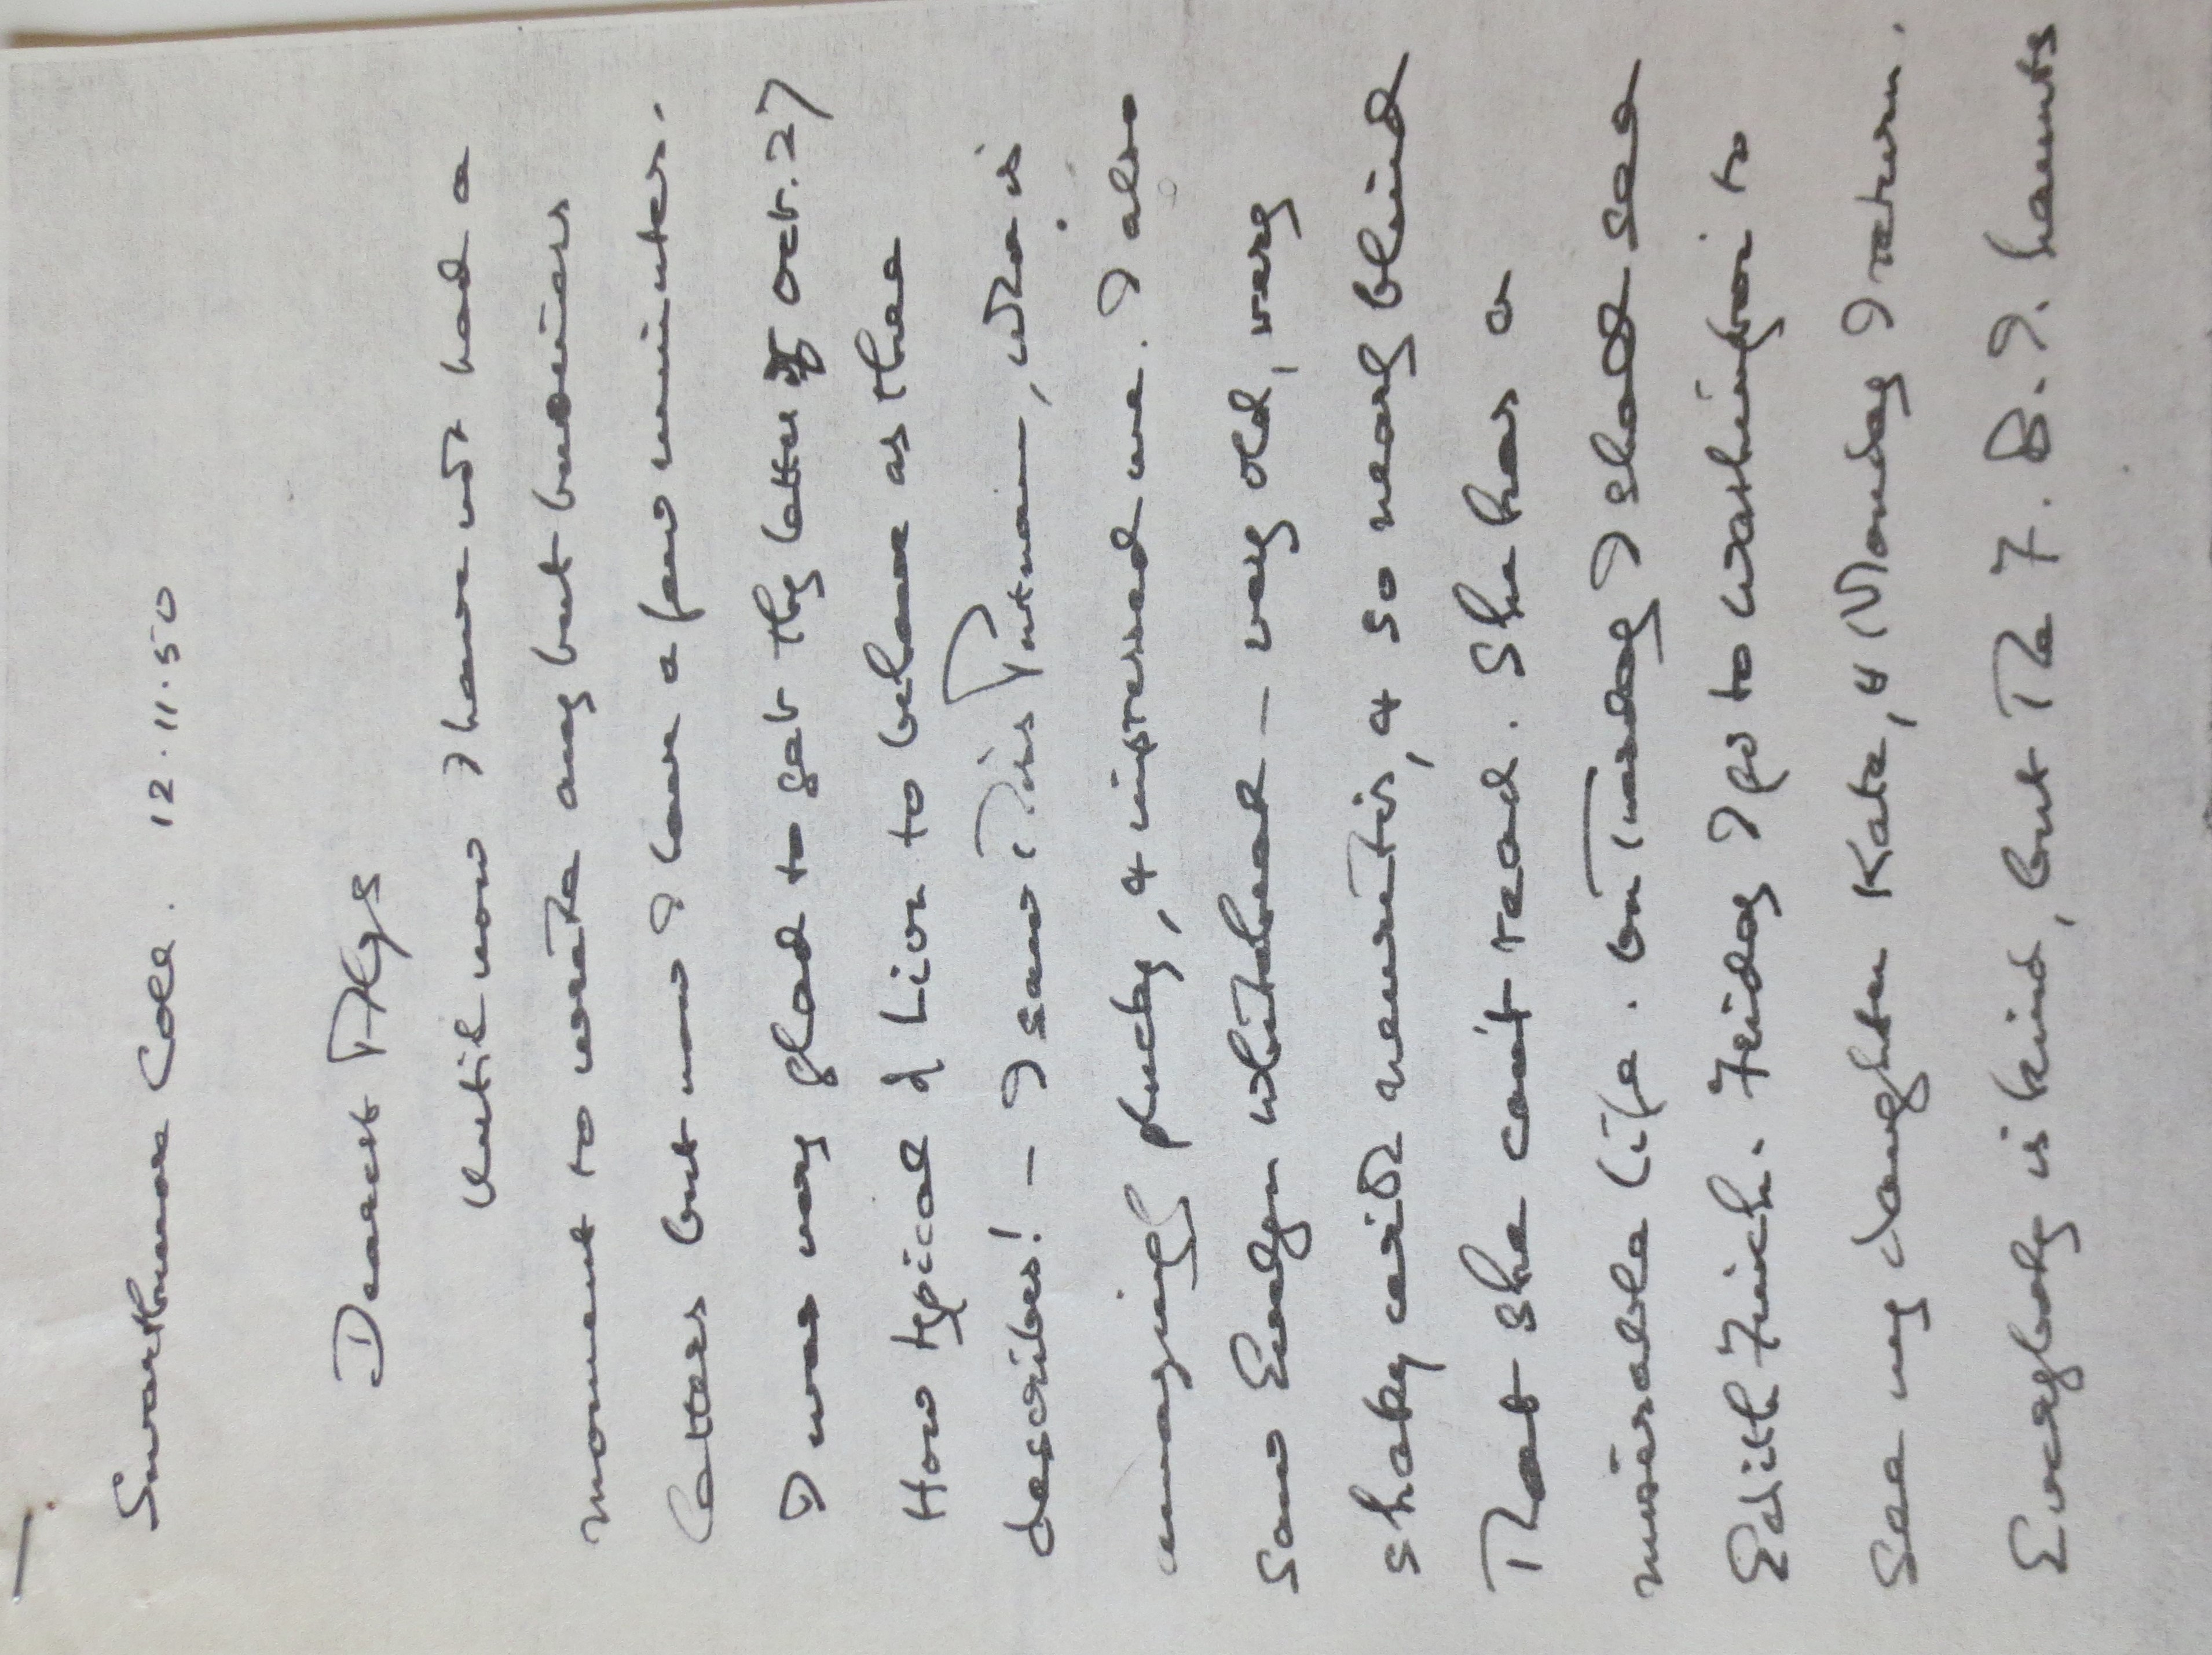 Swarthmore Coll. 12.11.50
Dearest Flys
Until now I have not had a
moment to write any but business
letters but now I have a few minutes.
I was very glad to get thy letter of Oct. 27
How typical of Lion to behave as thee
describes! – I saw Miss Putnam, who is
amazingly plucky, & impressed me. I also
saw Evelyn Whitehead – very old, very
shaky with neuritis, & so nearly blind
that she can't read. She has a
miserable life. On Tuesday I shall see
Edith Finch. Friday I go to Washington to
see my daughter Kate, & Monday I return.
Everybody is kind, but the F.B.I. haunts